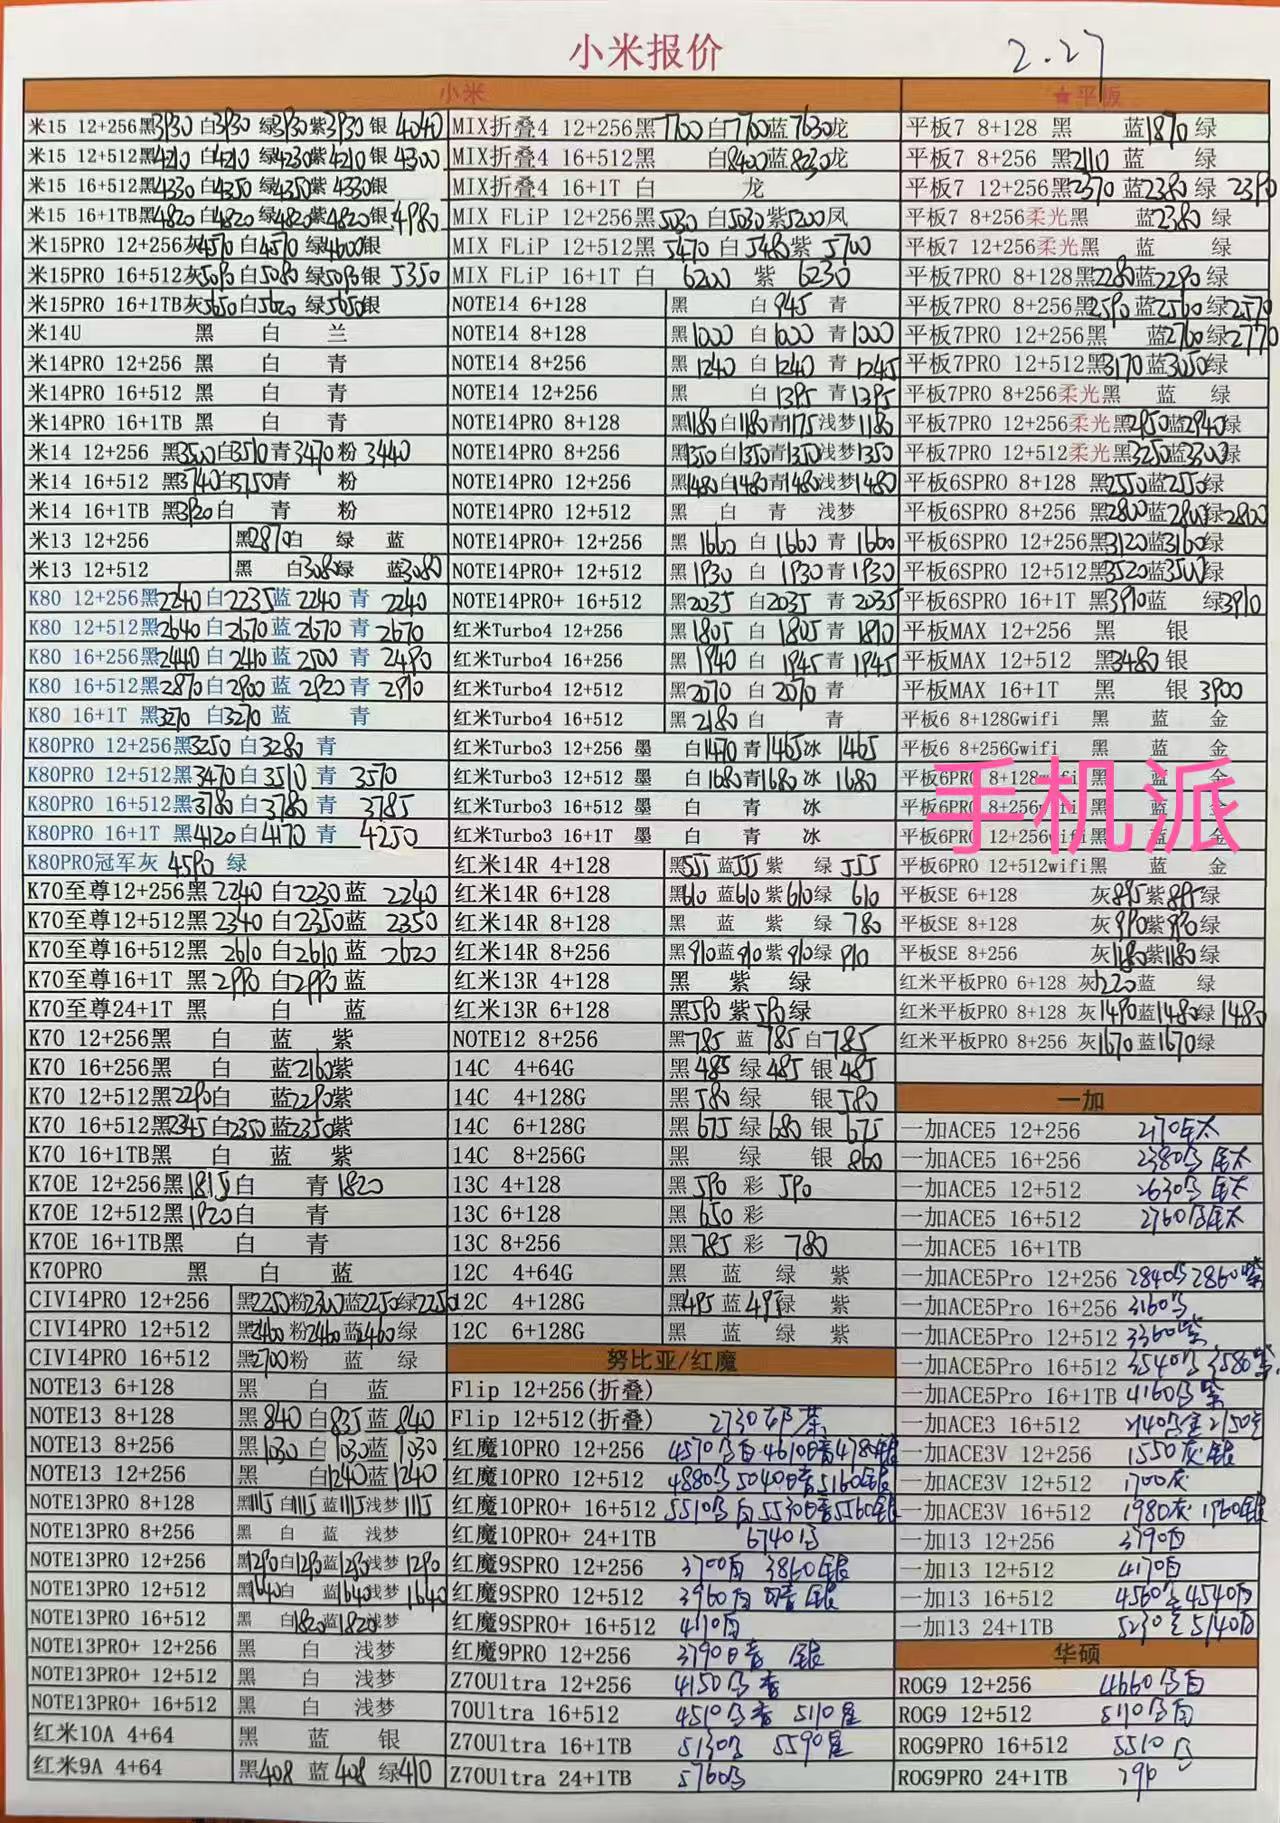 小米报价
2.27
小米
米15 12+256黑3930 白3930 绿3930紫3930 银 4040
米15 12+512黑4210 白4210 绿4230紫4210 银 4300
米15 16+512黑4330 白4350 绿4350紫 4330银
米15 16+1TB黑4820 白4820 绿4820紫4820银 4980
米15PRO 12+256灰4570 白4570 绿4600银
米15PRO 16+512灰5090 白5080 绿5090银 5350
米15PRO 16+1TB灰5650白5620 绿5650银
米14U 黑 白 兰
米14PRO 12+256 黑 白 青
米14PRO 16+512 黑 白 青
米14PRO 16+1TB 黑 白 青
米14 12+256 黑3500白3510青3470粉 3440
米14 16+512 黑3740白3750青 粉
米14 16+1TB 黑3920白 青 粉
米13 12+256 黑2870白 绿 蓝
米13 12+512 黑 白3080绿 蓝3080
K80 12+256黑2240白2235蓝 2240 青 2240
K80 12+512黑2640白2670蓝 2670 青 2670
K80 16+256黑2440白2410蓝 2500 青 2490
K80 16+512黑2870白2900蓝 2920 青 2910
K80 16+1T 黑3270 白3270 蓝 青
K80PRO 12+256黑3250白3280 青
K80PRO 12+512黑3470白3510 青 3570
K80PRO 16+512黑3780白3780 青 3785
K80PRO 16+1T 黑4120白4170 青 4250
K80PRO冠军灰 4590 绿
K70至尊12+256黑 2240 白2230蓝 2240
K70至尊12+512黑 2340 白2350蓝 2350
K70至尊16+512黑 2610 白2610 蓝 2620
K70至尊16+1T 黑 2990 白2990蓝
K70至尊24+1T 黑 白 蓝
K70 12+256黑 白 蓝 紫
K70 16+256黑 白 蓝2160紫
K70 12+512黑2290白 蓝2290紫
K70 16+512黑2345白2350蓝2350紫
K70 16+1TB黑 白 蓝 紫
K70E 12+256黑1815白 青1820
K70E 12+512黑1920白 青
K70E 16+1TB黑 白 青
K70PRO 黑 白 蓝
CIVI4PRO 12+256 黑2250粉2300蓝2250绿2250
CIVI4PRO 12+512 黑2460粉2460蓝2460绿
CIVI4PRO 16+512 黑2700粉 蓝 绿
NOTE13 6+128 黑 白 蓝
NOTE13 8+128 黑 840 白835蓝 840
NOTE13 8+256 黑1030 白1030蓝 1030
NOTE13 12+256 黑 白1240蓝1240
NOTE13PRO 8+128 黑1115白1115蓝1115浅梦1115
NOTE13PRO 8+256 黑 白 蓝 浅梦
NOTE13PRO 12+256 黑1290白1290蓝1290浅梦 1290
NOTE13PRO 12+512 黑1640白 蓝1640浅梦 1640
NOTE13PRO 16+512 黑 白1820蓝1820浅梦
NOTE13PRO+ 12+256 黑 白 浅梦
NOTE13PRO+ 12+512 黑 白 浅梦
NOTE13PRO+ 16+512 黑 白 浅梦
红米10A 4+64 黑 蓝 银
红米9A 4+64 黑408 蓝 408 绿410
MIX折叠4 12+256黑 7700白7700蓝7630龙
MIX折叠4 16+512黑 白8400蓝8230龙
MIX折叠4 16+1T 白 龙
MIX FLiP 12+256黑5030 白5030紫5200凤
MIX FLiP 12+512黑 5470 白 5480紫 5700
MIX FLiP 16+1T 白 6200 紫 6230
NOTE14 6+128 黑 白 945 青
NOTE14 8+128 黑1000 白1000 青1000
NOTE14 8+256 黑1240 白1240 青1245
NOTE14 12+256 黑 白1395 青1395
NOTE14PRO 8+128 黑1180白1180青1175浅梦1180
NOTE14PRO 8+256 黑1350白1350青1350浅梦1350
NOTE14PRO 12+256 黑1480白1480青1480浅梦1480
NOTE14PRO 12+512 黑 白 青 浅梦
NOTE14PRO+ 12+256 黑 1660 白1660 青 1660
NOTE14PRO+ 12+512 黑 1930 白 1930青1930
NOTE14PRO+ 16+512 黑2035 白2035 青 2035
红米Turbo4 12+256 黑1805 白 1805青 1810
红米Turbo4 16+256 黑1940 白 1945青 1945
红米Turbo4 12+512 黑2070 白2070 青
红米Turbo4 16+512 黑2180白 青
红米Turbo3 12+256 墨 白1470青1465冰 1465
红米Turbo3 12+512 墨 白1680青1680 冰 1680
红米Turbo3 16+512墨 白 青 冰
红米Turbo3 16+1T 墨 白 青 冰
红米14R 4+128 黑555蓝555紫 绿 555
红米14R 6+128 黑610蓝610紫610绿 610
红米14R 8+128 黑 蓝 紫 绿 780
红米14R 8+256 黑910蓝910紫910绿 910
红米13R 4+128 黑 紫 绿
红米13R 6+128 黑590 紫590绿
NOTE12 8+256 黑785 蓝 785 白785
14C 4+64G 黑485 绿485 银 485
14C 4+128G 黑580 绿 银580
14C 6+128G 黑 675 绿 680 银 675
14C 8+256G 黑 绿 银 860
13C 4+128 黑 590 彩 590
13C 6+128 黑 650 彩
13C 8+256 黑785 彩 780
12C 4+64G 黑 蓝 绿 紫
12C 4+128G 黑495 蓝 495绿 紫
12C 6+128G 黑 蓝 绿 紫
努比亚/红魔
Flip 12+256(折叠)
Flip 12+512(折叠) 2730
红魔10PRO 12+256
红魔10PRO 12+512
红魔10PRO+ 16+512
红魔10PRO+ 24+1TB 6740
红魔9SPRO 12+256 3700白 3860银
红魔9SPRO 12+512 3960白 暗 银
红魔9SPRO+ 16+512 4110白
红魔9PRO 12+256
Z70Ultra 12+256 4150
70Ultra 16+512 4510 5110星
Z70Ultra 16+1TB 5130 5590星
Z70Ultra 24+1TB 5760
★平板
平板7 8+128 黑 蓝1870 绿
平板7 8+256 黑2110 蓝 绿
平板7 12+256黑2370 蓝2380 绿 2390
平板7 8+256柔光黑 蓝2380 绿
平板7 12+256柔光黑 蓝 绿
平板7PRO 8+128黑2280蓝2290绿
平板7PRO 8+256黑2590蓝2560绿2570
平板7PRO 12+256黑 蓝2760绿2770
平板7PRO 12+512黑3170蓝3050绿
平板7PRO 8+256柔光黑 蓝 绿
平板7PRO 12+256柔光黑2950蓝2940绿
平板7PRO 12+512柔光黑3250蓝3300绿
平板6SPRO 8+128 黑2550蓝2550绿
平板6SPRO 8+256 黑2800蓝2800绿2800
平板6SPRO 12+256黑3120蓝3160绿
平板6SPRO 12+512黑3520蓝3500绿
平板6SPRO 16+1T 黑3910蓝 绿3910
平板MAX 12+256 黑 银
平板MAX 12+512 黑3480 银
平板MAX 16+1T 黑 银 3900
平板6 8+128Gwifi 黑 蓝 金
平板6 8+256Gwifi 黑 蓝 金
平板6PRO 8+128wifi黑 蓝 金
平板6PRO 8+256wifi黑 蓝 金
平板6PRO 12+256wifi黑 蓝 金
平板6PRO 12+512wifi黑 蓝 金
手机派
平板SE 6+128 灰895紫895绿
平板SE 8+128 灰990紫990绿
平板SE 8+256 灰1180紫1180绿
红米平板PRO 6+128 灰1220蓝 绿
红米平板PRO 8+128 灰1490蓝1480绿 1480
红米平板PRO 8+256 灰1670蓝1670绿
一加
一加ACE5 12+256
一加ACE5 16+256 2380
一加ACE5 12+512 2630
一加ACE5 16+512 2760
一加ACE5 16+1TB
一加ACE5Pro 12+256 2840 2860紫
一加ACE5Pro 16+256 3160
一加ACE5Pro 12+512 3360紫
一加ACE5Pro 16+512 3540 3580紫
一加ACE5Pro 16+1TB 4160 紫
一加ACE3 16+512
一加ACE3V 12+256 1550灰 银
一加ACE3V 12+512 1700灰
一加ACE3V 16+512 1980灰 1960银
一加13 12+256 3790白
一加13 12+512 4170白
一加13 16+512 4560 4540白
一加13 24+1TB 5230 5140白
华硕
ROG9 12+256 4660 白
ROG9 12+512 5110 白
ROG9PRO 16+512 5510
ROG9PRO 24+1TB